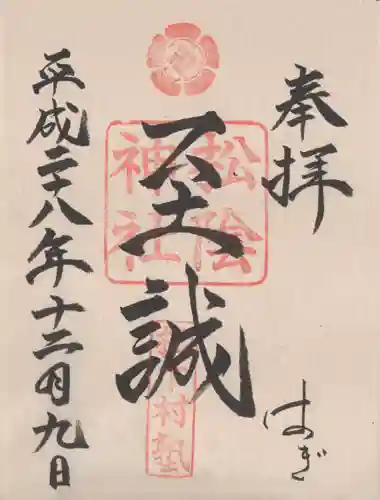 奉拝
はぎ
至誠
松陰神社
松下村塾
平成二十八年十二月九日